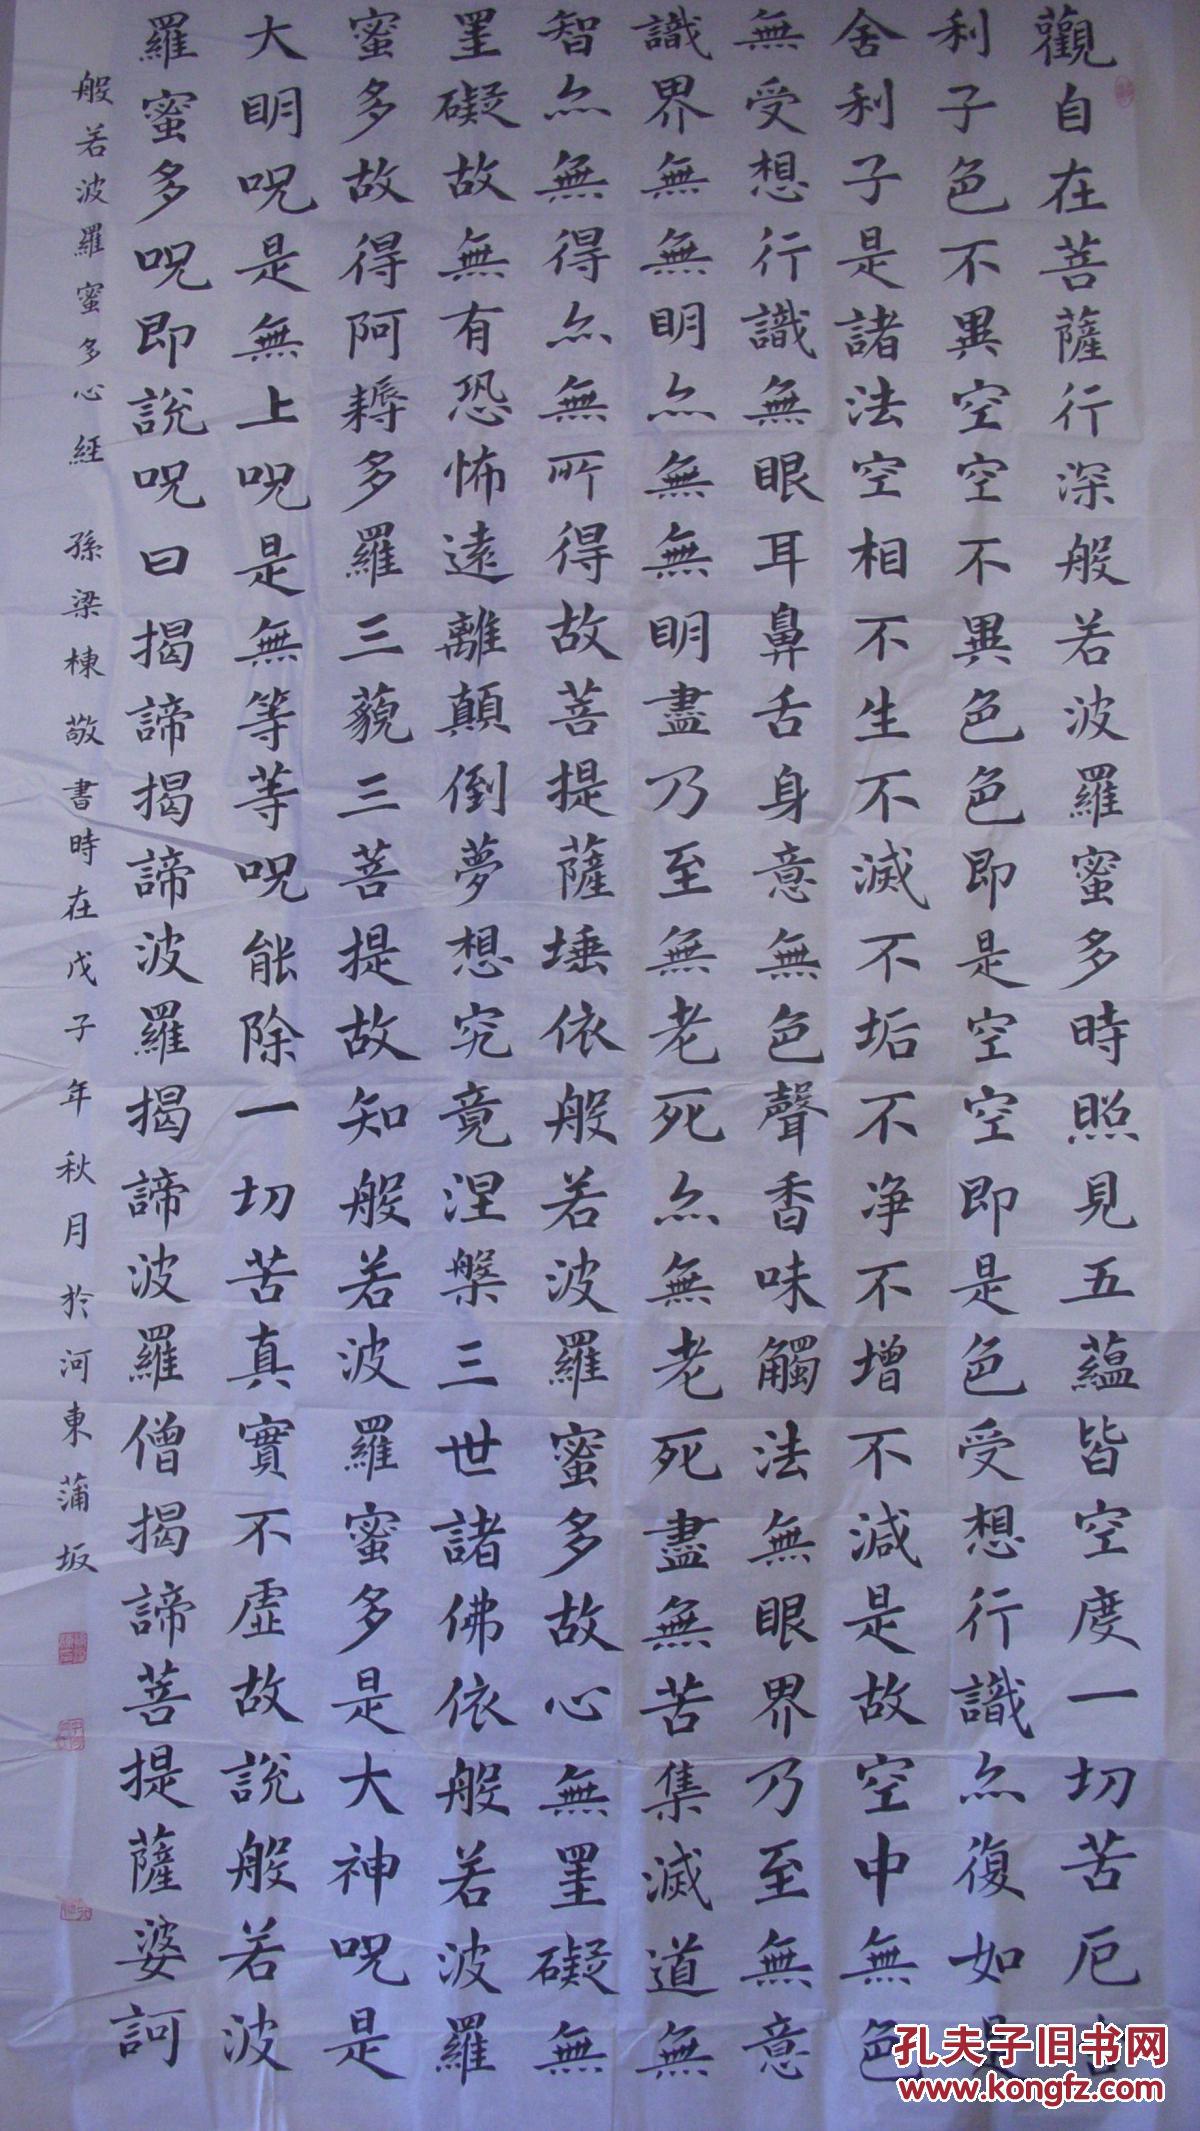 觀自在菩薩行深般若波羅蜜多時照見五蘊皆空度一切苦厄舍
利子色不異空空不異色色即是空空即是色受想行識亦復如是
舍利子是諸法空相不生不滅不垢不净不增不減是故空中無色
無受想行識無眼耳鼻舌身意無色聲香味觸法無眼界乃至無意
識界無無明亦無無明盡乃至無老死亦無老死盡無苦集滅道無
智亦無得亦無所得故菩提薩埵依般若波羅蜜多故心無罣礙無
罣礙故無有恐怖遠離顛倒夢想究竟涅槃三世諸佛依般若波羅
蜜多故得阿耨多羅三藐三菩提故知般若波羅蜜多是大神呪是
大明呪是無上呪是無等等呪能除一切苦真實不虛故說般若波
羅蜜多呪即說呪曰揭諦揭諦波羅揭諦波羅僧揭諦菩提薩婆訶
般若波羅蜜多心經 孫梁棟敬書時在戊子年秋月於河東蒲坂
孔夫子旧书网
www.kongfz.com